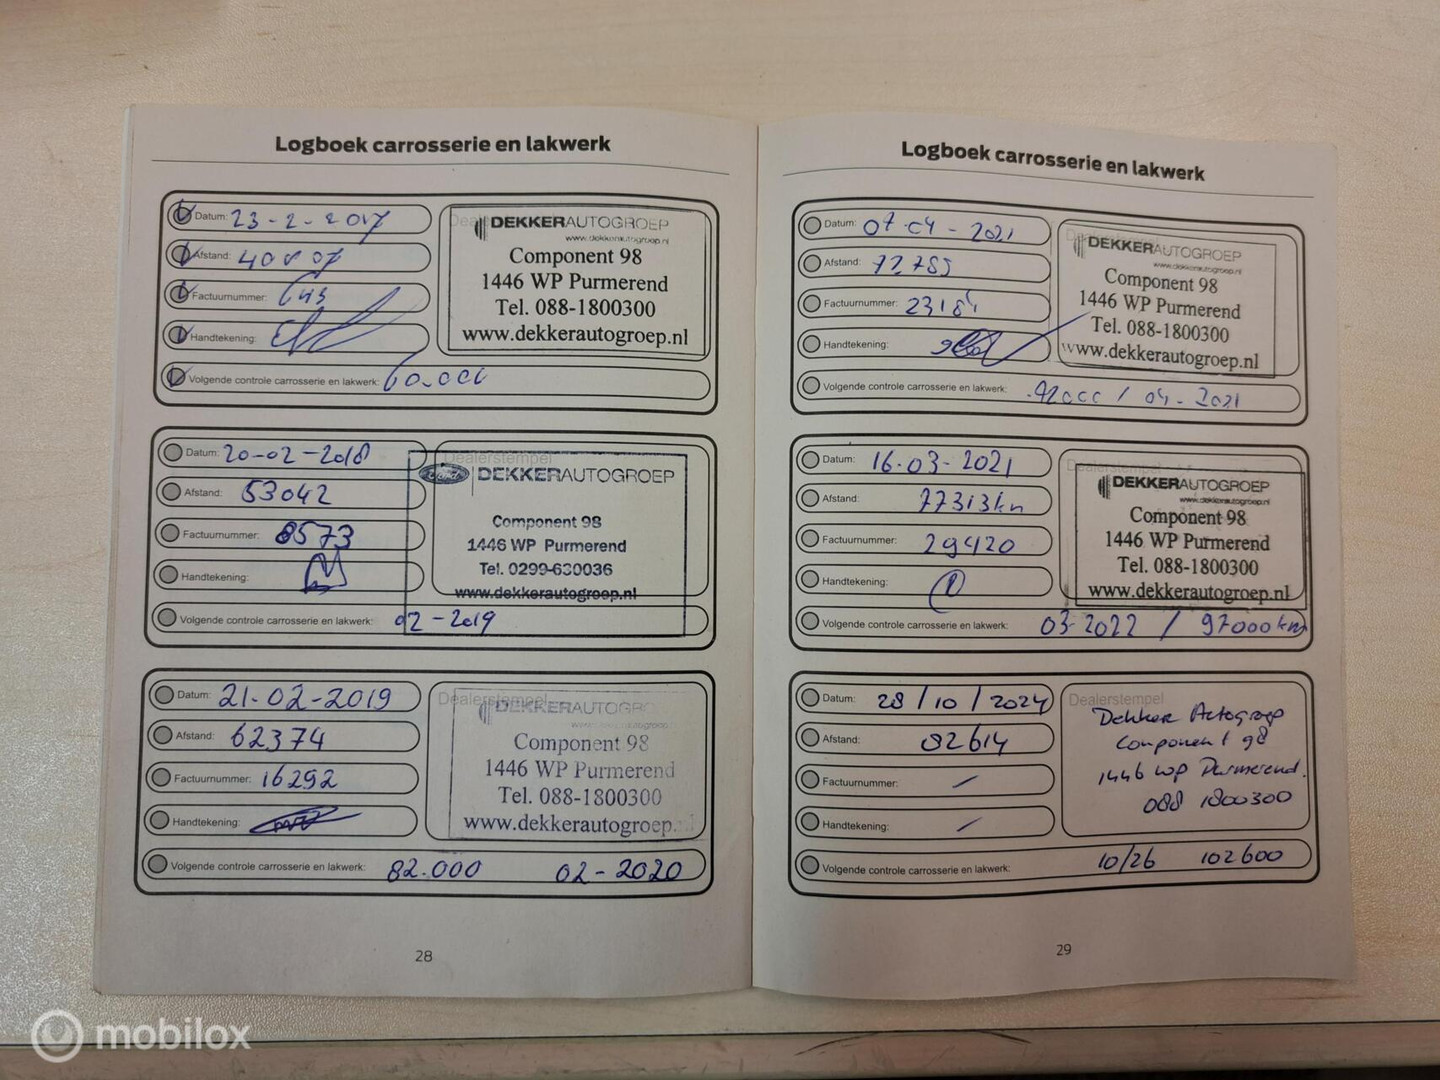 Logboek carrosserie en lakwerk
Datum: 23-2-2017
Afstand: 40807
Factuurnummer: 643
Handtekening:
Volgende controle carrosserie en lakwerk: 60.000
DEKKERAUTOGROEP
www.dekkerautogroep.nl
Component 98
1446 WP Purmerend
Tel. 088-1800300
www.dekkerautogroep.nl
Datum: 20-02-2018
Afstand: 53042
Factuurnummer: 8573
Handtekening:
Volgende controle carrosserie en lakwerk: 02-2019
Dealerstempel
Ford DEKKERAUTOGROEP
Component 98
1446 WP Purmerend
Tel. 0299-630036
www.dekkerautogroep.nl
Datum: 21-02-2019
Afstand: 62374
Factuurnummer: 16292
Handtekening:
Volgende controle carrosserie en lakwerk: 82.000 02-2020
Dealerstempel
DEKKERAUTOGRO
Component 98
1446 WP Purmerend
Tel. 088-1800300
www.dekkerautogroep.nl
28
Logboek carrosserie en lakwerk
Datum: 07-04-2021
Afstand: 72785
Factuurnummer: 23184
Handtekening:
Volgende controle carrosserie en lakwerk: 92000 / 04-2021
DEKKERAUTOGROEP
www.dekkerautogroep.nl
Component 98
1446 WP Purmerend
Tel. 088-1800300
www.dekkerautogroep.nl
Datum: 16-03-2021
Afstand: 77313km
Factuurnummer: 29420
Handtekening:
Volgende controle carrosserie en lakwerk: 03-2022 / 97000km
Dealerstempel
DEKKERAUTOGROEP
www.dekkerautogroep.nl
Component 98
1446 WP Purmerend
Tel. 088-1800300
www.dekkerautogroep.nl
Datum: 28/10/2024
Afstand: 82614
Factuurnummer: /
Handtekening: /
Volgende controle carrosserie en lakwerk: 10/26 102600
Dealerstempel
Dekker Autogroep
Component 98
1446 WP Purmerend.
088 1800300
29
mobilox